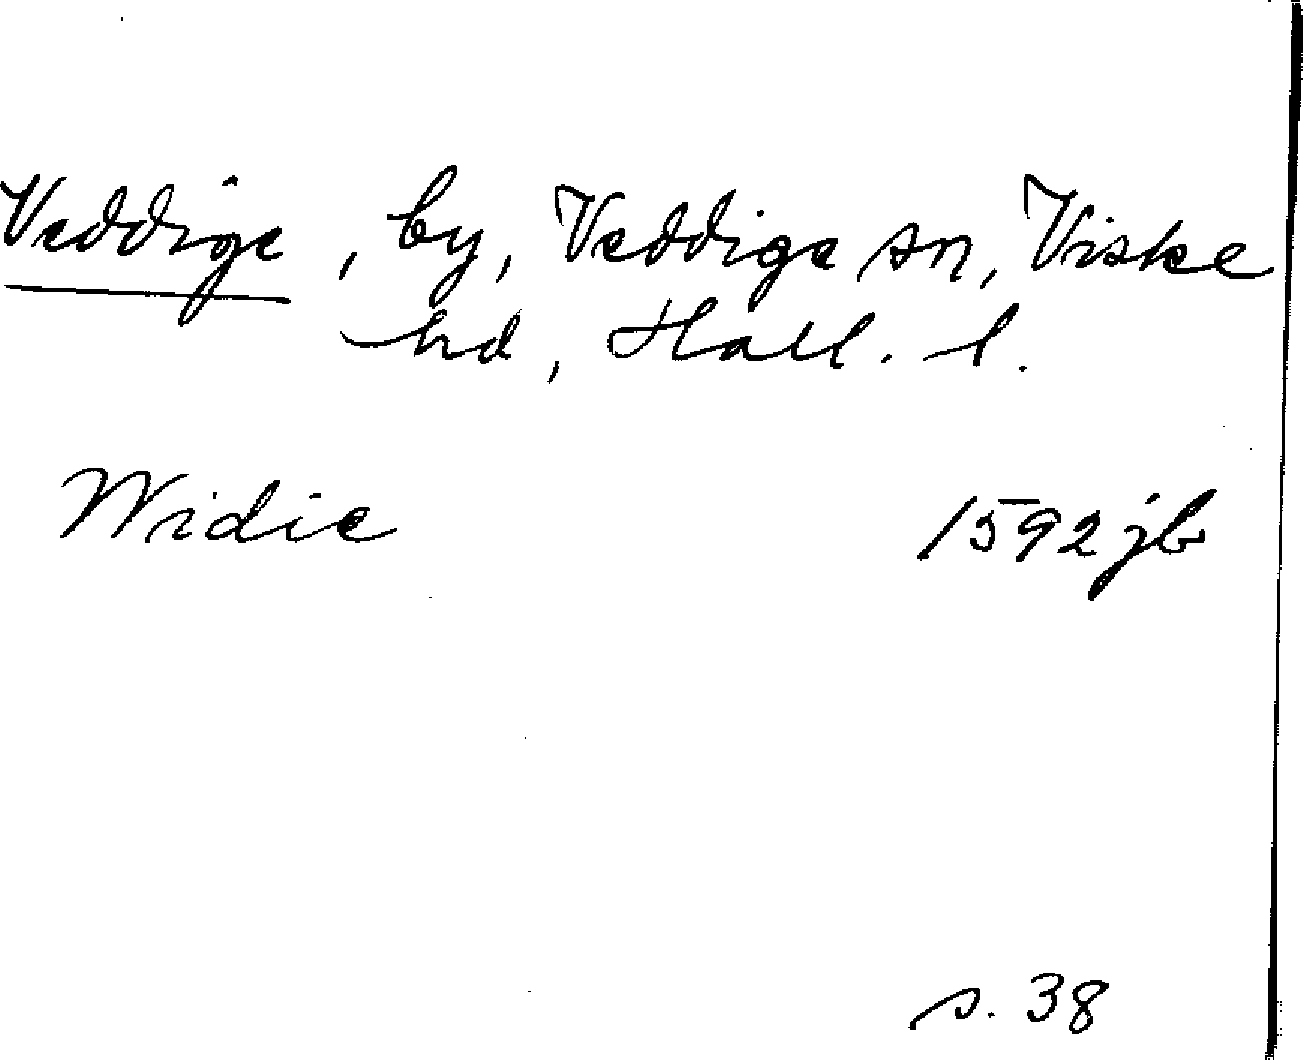 Veddige, by, Veddige sn, Viske
hd, Hall. l.
Widie 1592 jb
s. 38